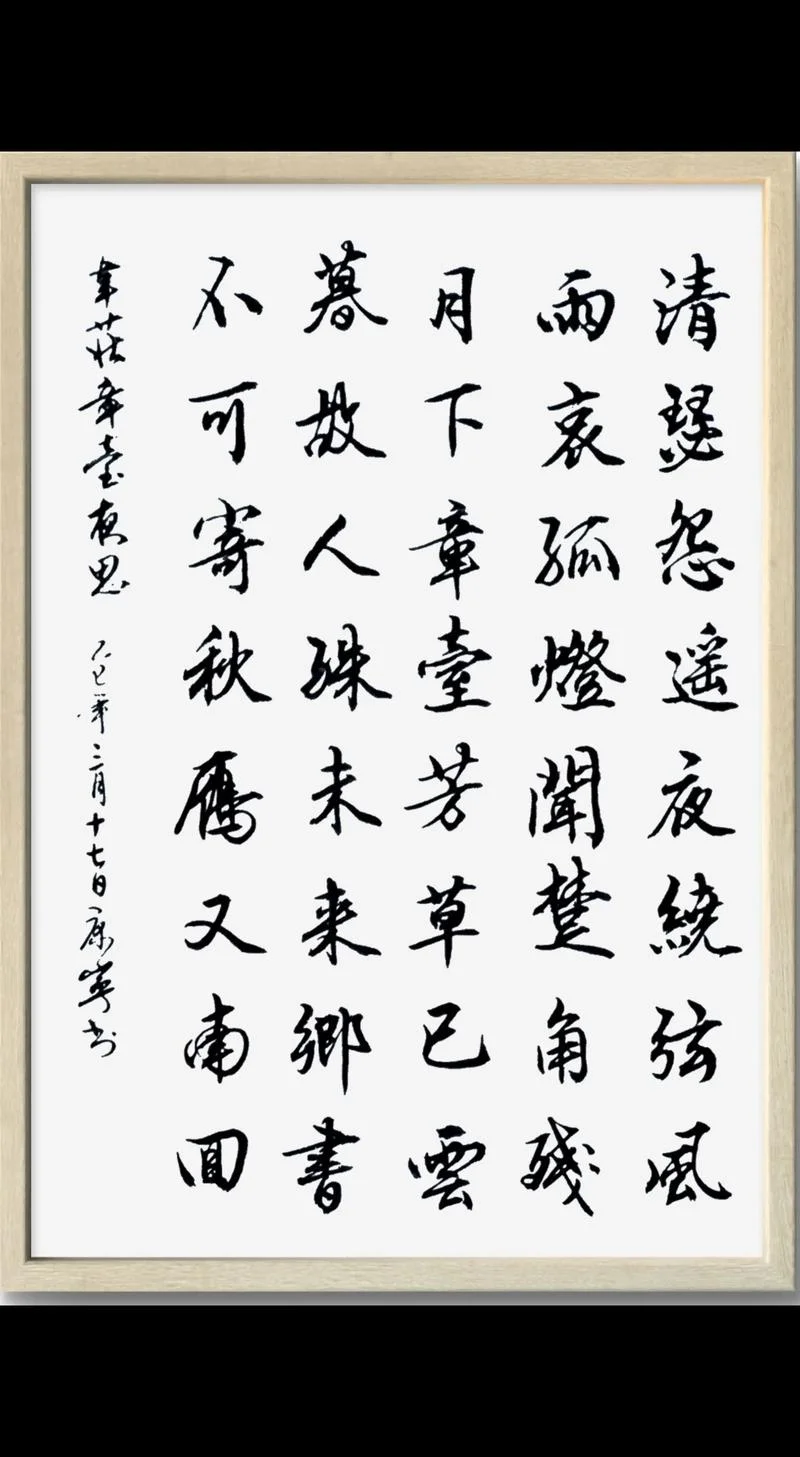 清瑟怨遥夜繞弦風
雨哀孤燈聞楚角残
月下章臺芳草已雲
暮故人殊未来鄉書
不可寄秋鴈又南囬
韋莊章臺夜思 乙巳年三月十七日康书